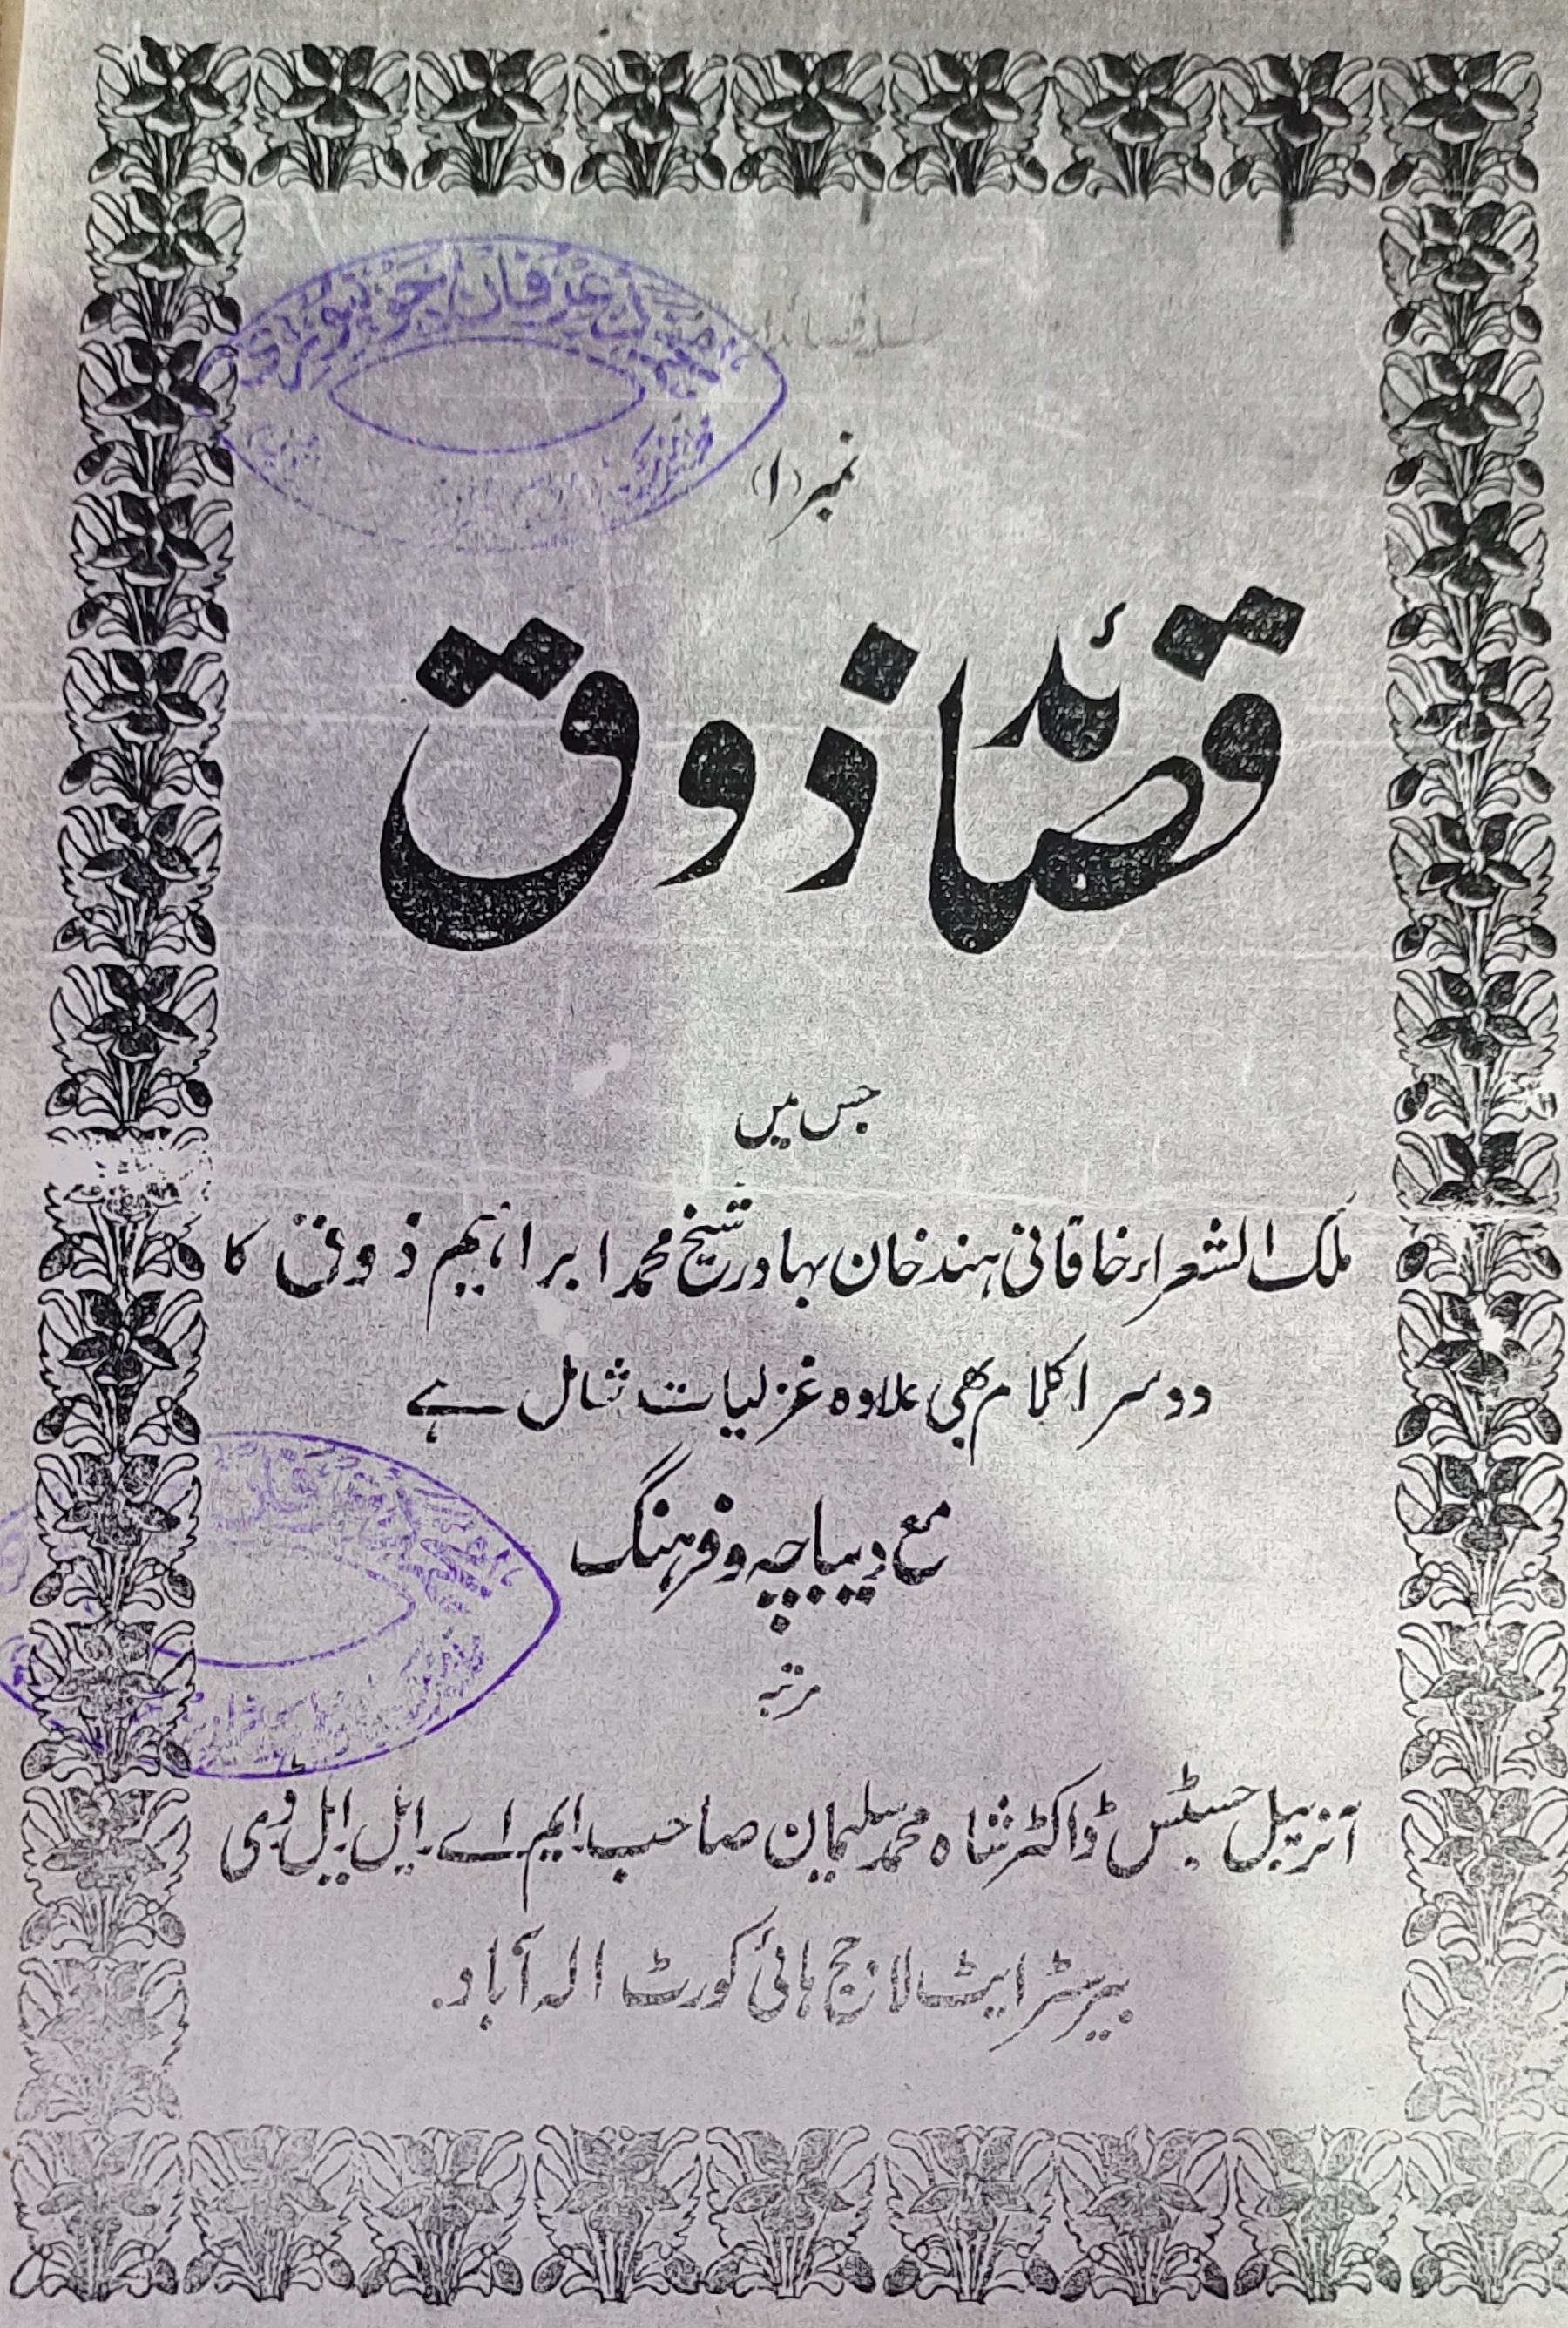 عرفان جونپوری
نمبر (۱)
قصائد ذوق
جس میں
ملک الشعراء خاقانی ہند خان بہادر شیخ محمد ابراہیم ذوق کا
دوسرا کلام بھی علاوہ غزلیات شامل ہے
مع دیباچہ و فرہنگ
مرتبہ
آنریبل جسٹس ڈاکٹر شاہ محمد سلیمان صاحب ایم اے۔ ایل ایل ڈی
بیرسٹر ایٹ لا جج ہائی کورٹ الہ آباد۔